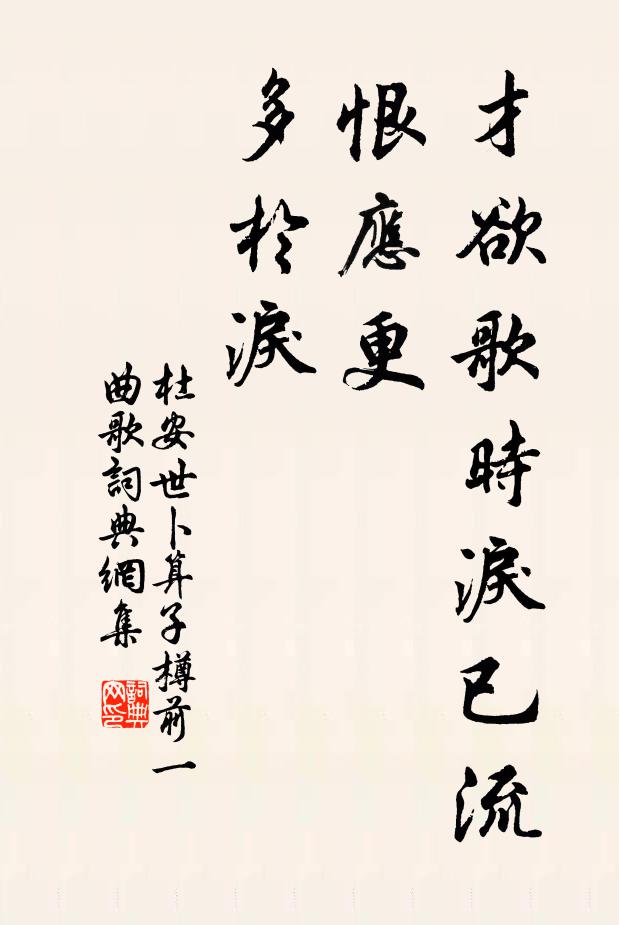 才欲歌時淚已流
恨應更
多於淚
杜安世卜算子樽前一
曲歌詞典網集
詞典
网印